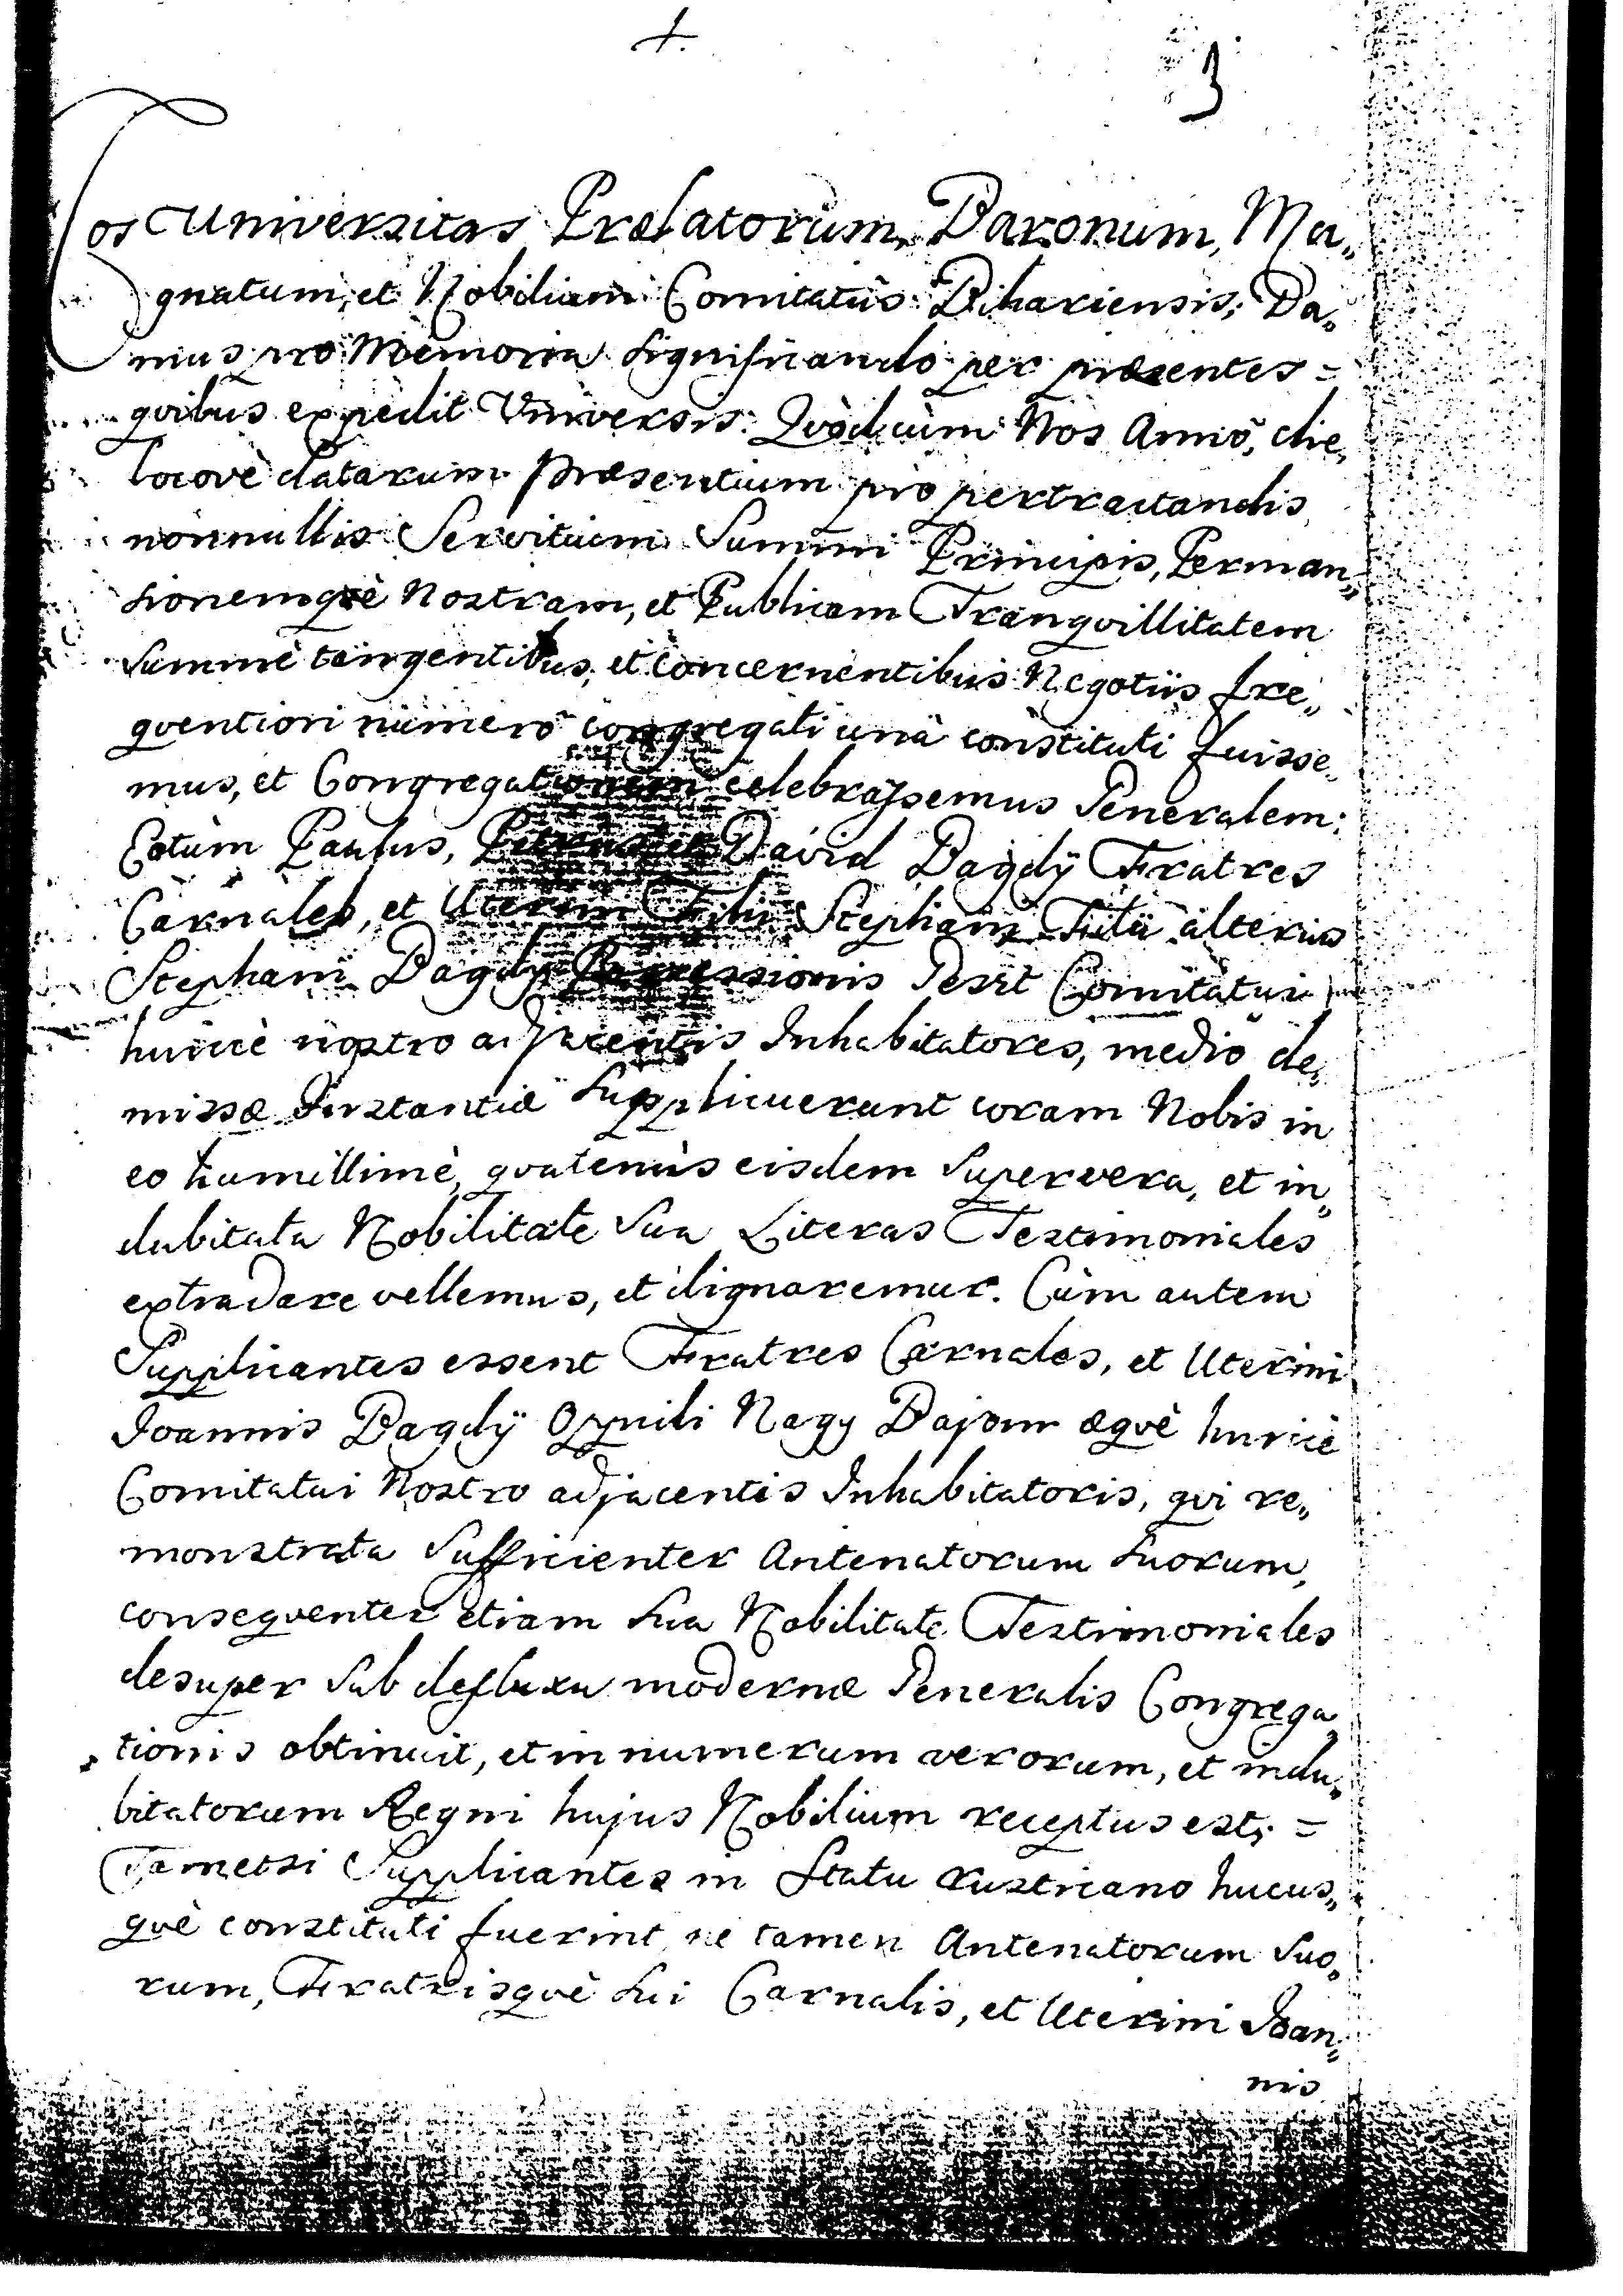 3
Nos Universitas Prælatorum, Baronum, Ma„
gnatum, et Nobilium Comitatûs Bihariensis; Da„
mus pro Memoria significando per præsentes =
qvibus expedit Universis: Qvòdcùm Nos Annô, die,
locovè datarum præsentium pro pertractandis
nonnullis Servitium Summi Principis, Perman„
sionemqvè Nostram, et Publicam Tranqvillitatem
summè tangentibus, et concernentibus Negotiis fre„
qventiori numerô congregati unà constituti fuisse„
mus, et Congregationem celebrassemus Generalem;
Eotùm Paulus, Petrus et David Bagdÿ Fratres
Carnales, et Uterini Filii Stephani Filii alterius
Stephani Bagdÿ Possessionis Peszt Comitatui
huicè nostro adjacentis Inhabitatores, mediô de„
missæ Instantiæ supplicuerunt coram Nobis in
eo humillimè, qvatenùs eisdem super vera, et in„
dubitata Nobilitate sua Literas Testimoniales
extradare vellemus, et dignaremur. Cùm autem
Supplicantes essent Fratres Carnales, et Uterini
Joannis Bagdÿ Oppidi Nagy Bajom æqvè huicè
Comitatui Nostro adjacentis Inhabitatoris, qvi re„
monstrata sufficienter Antenatorum suorum,
conseqventer etiam sua Nobilitate Testimoniales
desuper sub defluxu modernæ Generalis Congrega„
tionis obtinuit, et in numerum verorum, et indu„
bitatorum Regni hujus Nobilium receptus est; =
Tametsi Supplicantes in Statu rusticano hucus„
qvè constituti fuerint, ne tamen Antenatorum suo„
rum, Fratrisqvè sui Carnalis, et Uterini Joan„
nis